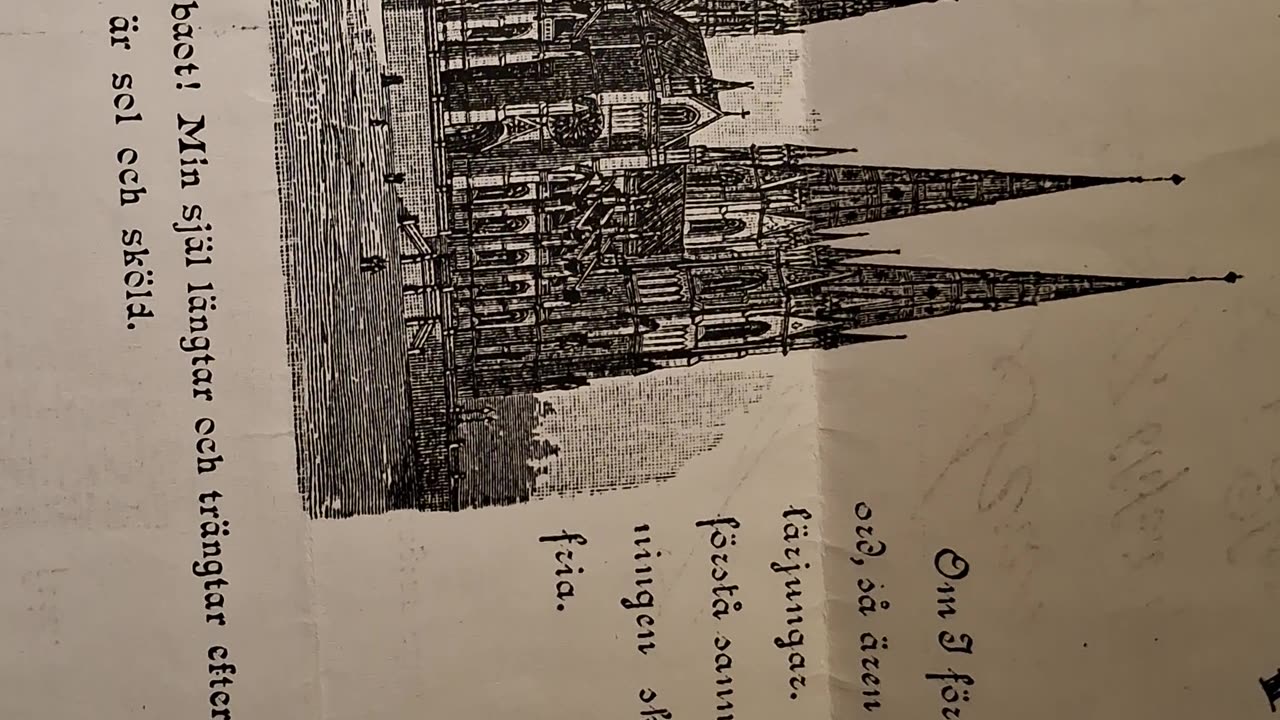 Om I för
ord, så ären
lärjungar.
förstå sann
ningen sk
fria.
baot! Min själ längtar och trängtar efter
är sol och sköld.